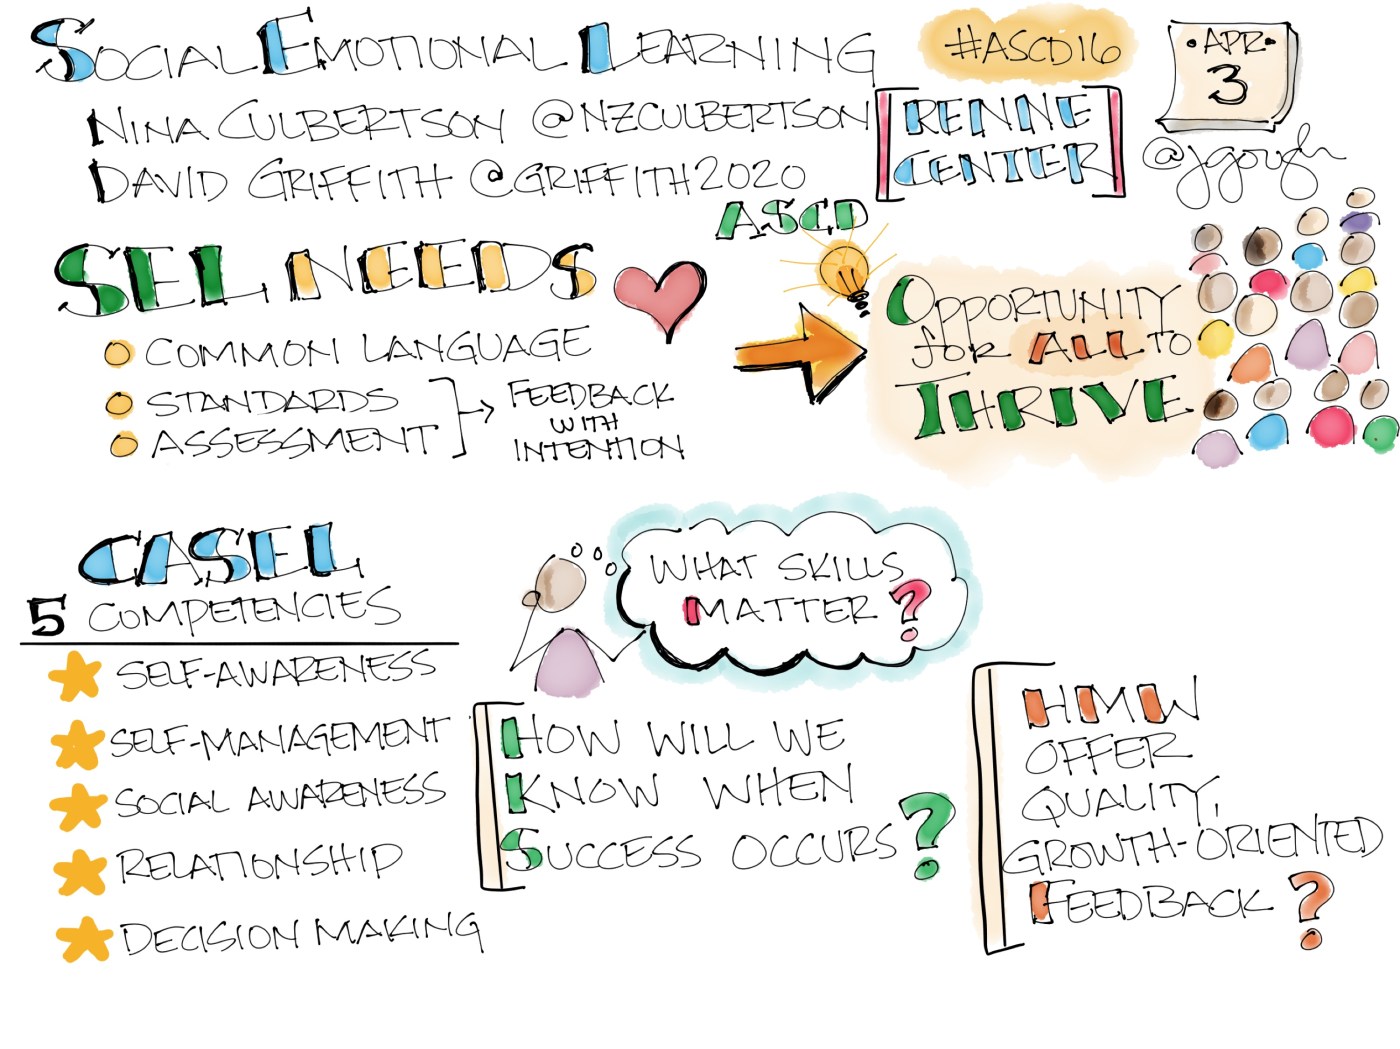 SOCIAL EMOTIONAL LEARNING
#ASCD16
• APR •
3
NINA CULBERTSON @NZCULBERTSON
DAVID GRIFFITH @GRIFFITH2020
RENNE
CENTER
@jgough
ASCD
SEL NEEDS
COMMON LANGUAGE
STANDARDS
ASSESSMENT
FEEDBACK
WITH
INTENTION
OPPORTUNITY
for ALL TO
THRIVE
CASEL
5 COMPETENCIES
SELF-AWARENESS
SELF-MANAGEMENT
SOCIAL AWARENESS
RELATIONSHIP
DECISION MAKING
WHAT SKILLS
MATTER?
HOW WILL WE
KNOW WHEN
SUCCESS OCCURS?
HMW
OFFER
QUALITY,
GROWTH-ORIENTED
FEEDBACK?